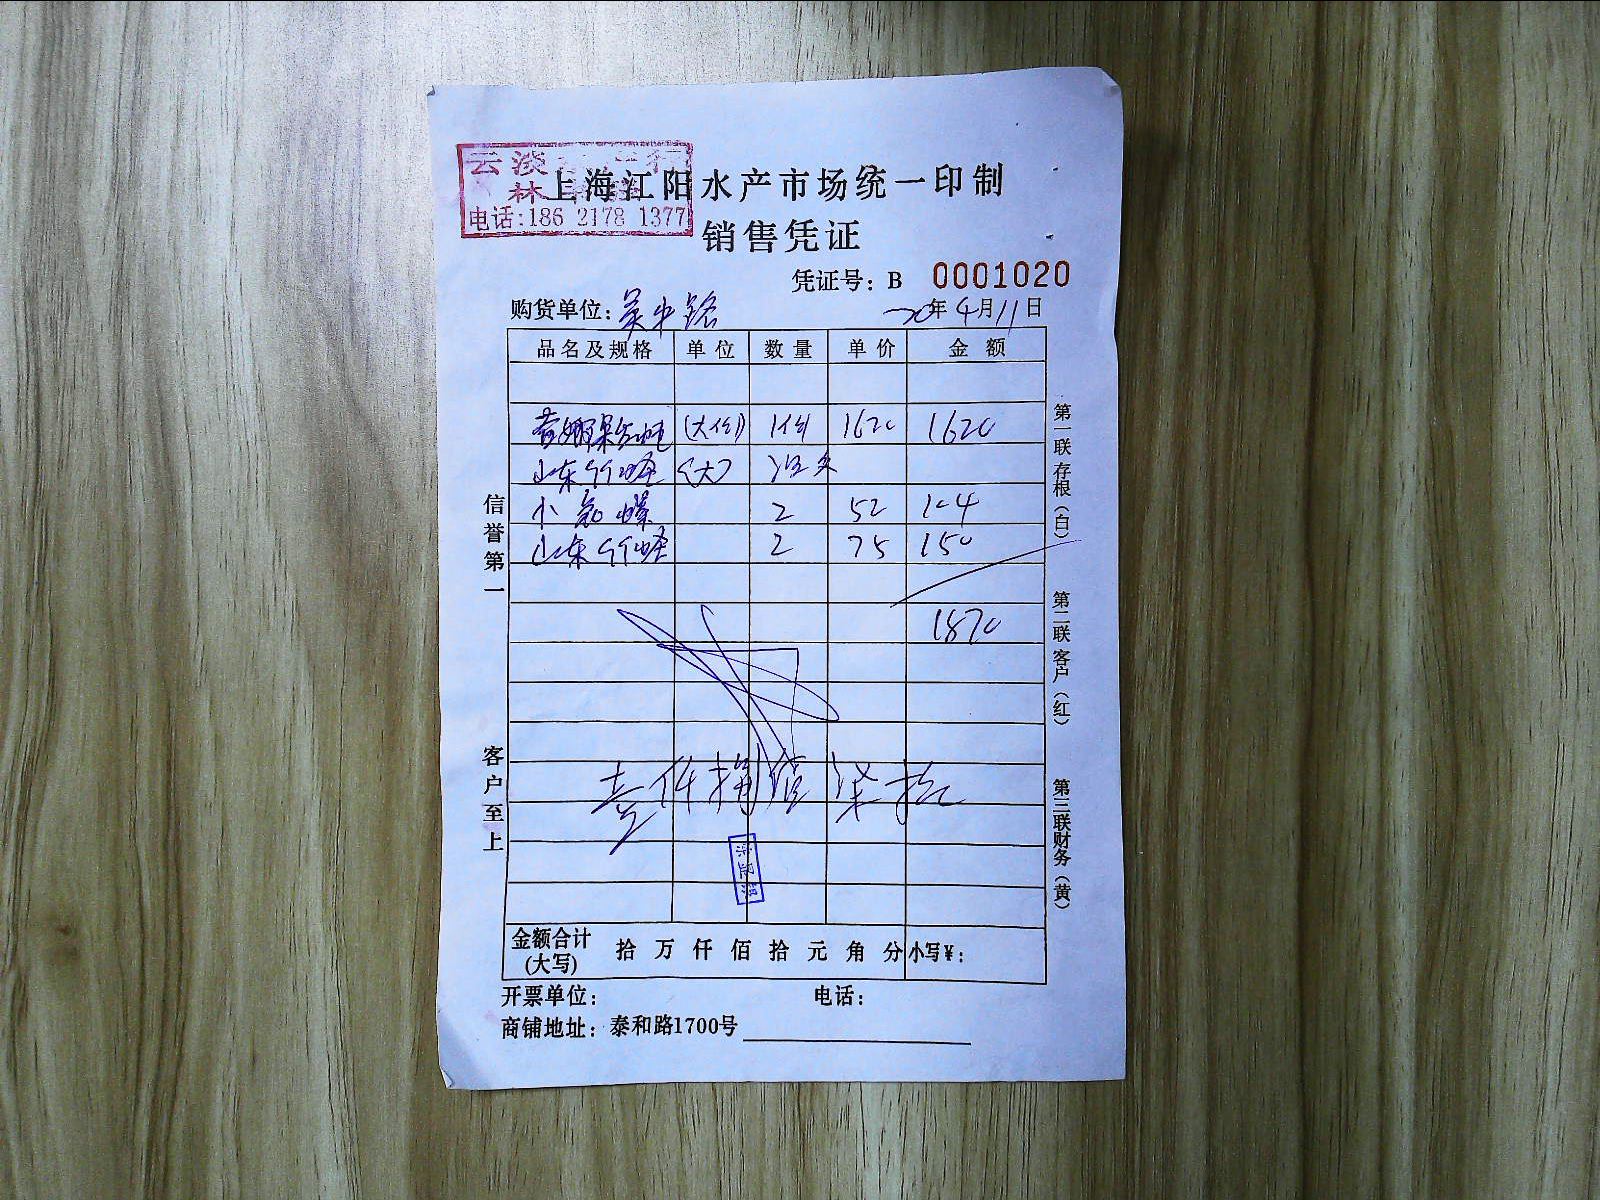 云淡
林
电话:186 2178 1377
上海江阳水产市场统一印制
销售凭证
凭证号: B 0001020
购货单位: 吴中路
20年4月11日
品名及规格 单位 数量 单价 金额
(大) 1件 1620 1620
山东竹蛏 (大) 没有
小 螺 2 52 104
山东竹蛏 2 75 150
1870
壹仟捌佰柒拾
金额合计(大写) 拾 万 仟 佰 拾 元 角 分 小写¥:
开票单位: 电话:
商铺地址: 泰和路1700号
信誉第一
客户至上
第一联 存根(白)
第二联 客户(红)
第三联财务(黄)